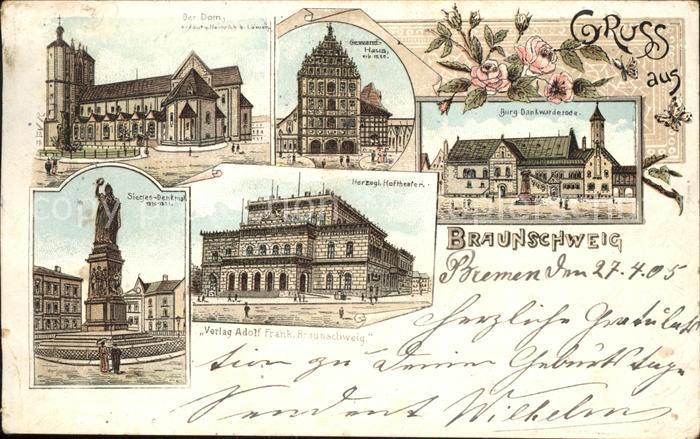 Der Dom,
erbaut v. Heinrich d. Löwen.
Gewand-
Haus,
erb. 1590.
GRUSS
aus
Burg Dankwarderode.
Sieges-Denkmal
1870-1871.
Herzogl. Hoftheater.
BRAUNSCHWEIG
Bremen den 27.4.05
„Verlag Adolf Frank, Braunschweig."
herzliche Gratula
tion zu Deinem Geburtstage
sendet Wilhelm